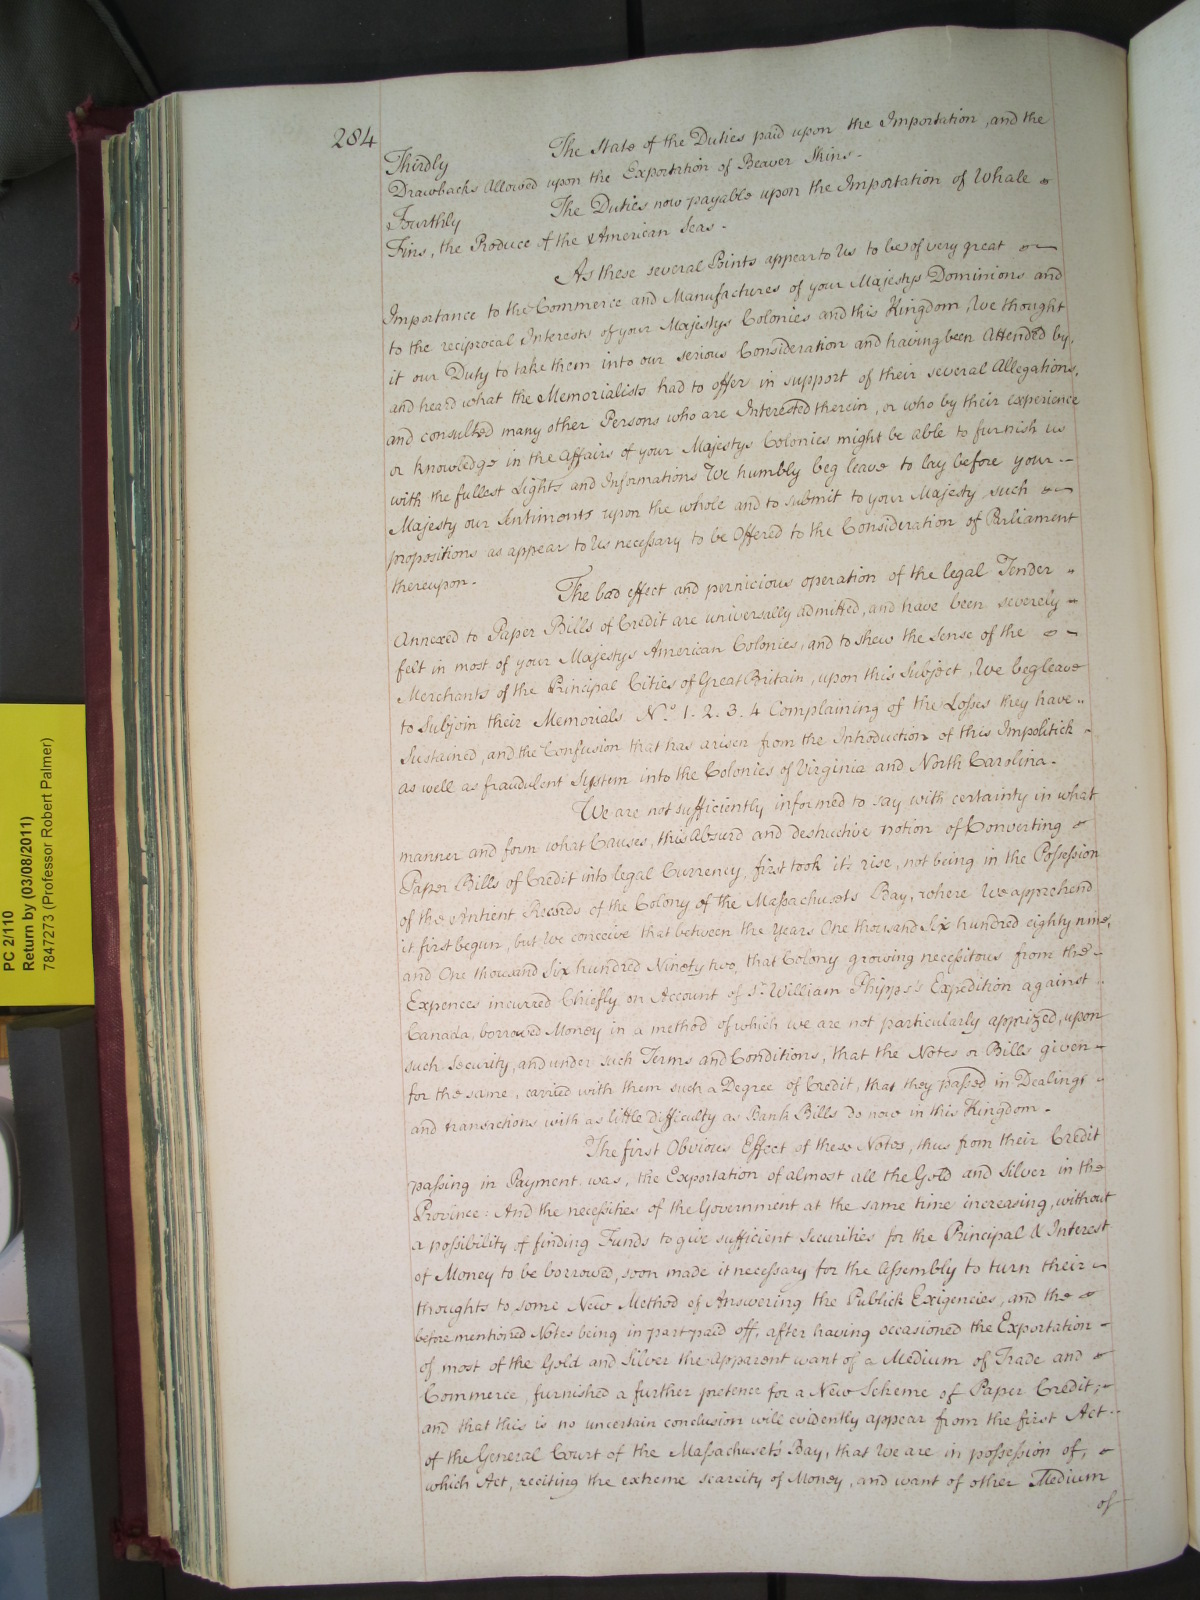 284
Thirdly The State of the Duties paid upon the Importation, and the
Drawbacks Allowed upon the Exportation of Beaver Skins.
Fourthly The Duties now payable upon the Importation of Whale
Fins, the Produce of the American Seas.
As these several Points appear to Us to be of very great
Importance to the Commerce and Manufactures of your Majestys Dominions and
to the reciprocal Interests of your Majestys Colonies and this Kingdom, We thought
it our Duty to take them into our serious Consideration and having been Attended by,
and heard what the Memorialists had to offer in support of their several Allegations,
and consulted many other Persons who are Interested therein, or who by their experience
or knowledge in the Affairs of your Majestys Colonies might be able to furnish us
with the fullest Lights and Informations We humbly beg leave to lay before your
Majesty our Sentiments upon the whole and to submit to your Majesty such
propositions as appear to Us necessary to be Offered to the Consideration of Parliament
thereupon.
The bad effect and pernicious operation of the legal Tender
Annexed to Paper Bills of Credit are universally admitted, and have been severely
felt in most of your Majestys American Colonies, and to shew the Sense of the
Merchants of the Principal Cities of Great Britain, upon this Subject, We beg leave
to Subjoin their Memorials No. 1. 2. 3. 4 Complaining of the Losses they have
Sustained, and the Confusion that has arisen from the Introduction of this Impolitick
as well as fraudulent System into the Colonies of Virginia and North Carolina.
We are not sufficiently informed to say with certainty in what
manner and form what Causes, this Absurd and destructive notion of Converting
Paper Bills of Credit into legal Currency, first took its rise, not being in the Possession
of the Antient Records of the Colony of the Massachusets Bay, where We apprehend
it first begun, but We conceive that between the Years One thousand Six hundred eighty nine,
and One thousand Six hundred Ninety two, that Colony growing necessitous from the
Expences incurred Chiefly on Account of Sr. William Phipps's Expedition against
Canada, borrowed Money in a method of which we are not particularly apprized, upon
such Security, and under such Terms and Conditions, that the Notes or Bills given
for the same, carried with them such a Degree of Credit, that they passed in Dealings
and transactions with as little difficulty as Bank Bills do now in this Kingdom.
The first Obvious Effect of these Notes, thus from their Credit
passing in Payment was, the Exportation of almost all the Gold and Silver in the
Province: And the necessities of the Government at the same time increasing, without
a possibility of finding Funds to give sufficient Securities for the Principal & Interest
of Money to be borrowed, soon made it necessary for the Assembly to turn their
thoughts to some New Method of Answering the Publick Exigencies, and the
beforementioned Notes being in part paid off, after having occasioned the Exportation
of most of the Gold and Silver the apparent want of a Medium of Trade and
Commerce, furnished a further pretence for a New Scheme of Paper Credit;
and that this is no uncertain conclusion will evidently appear from the first Act
of the General Court of the Massachuset's Bay, that We are in possession of,
which Act, reciting the extreme scarcity of Money, and want of other Medium
of
PC 2/110
Return by (03/08/2011)
7847273 (Professor Robert Palmer)